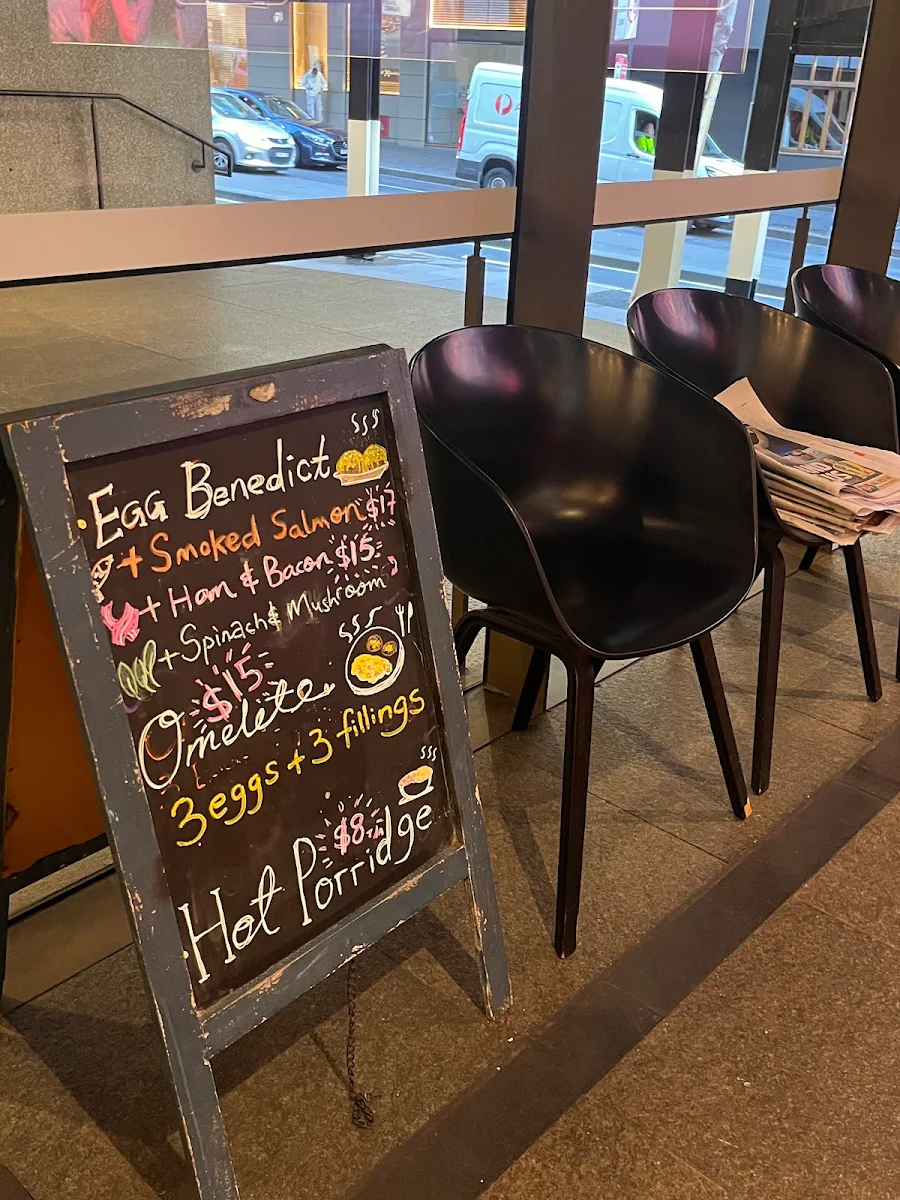 Egg Benedict
+ Smoked Salmon $17
+ Ham & Bacon $15
+ Spinach & Mushroom
$15
Omelete
3 eggs + 3 fillings
$8
Hot Porridge